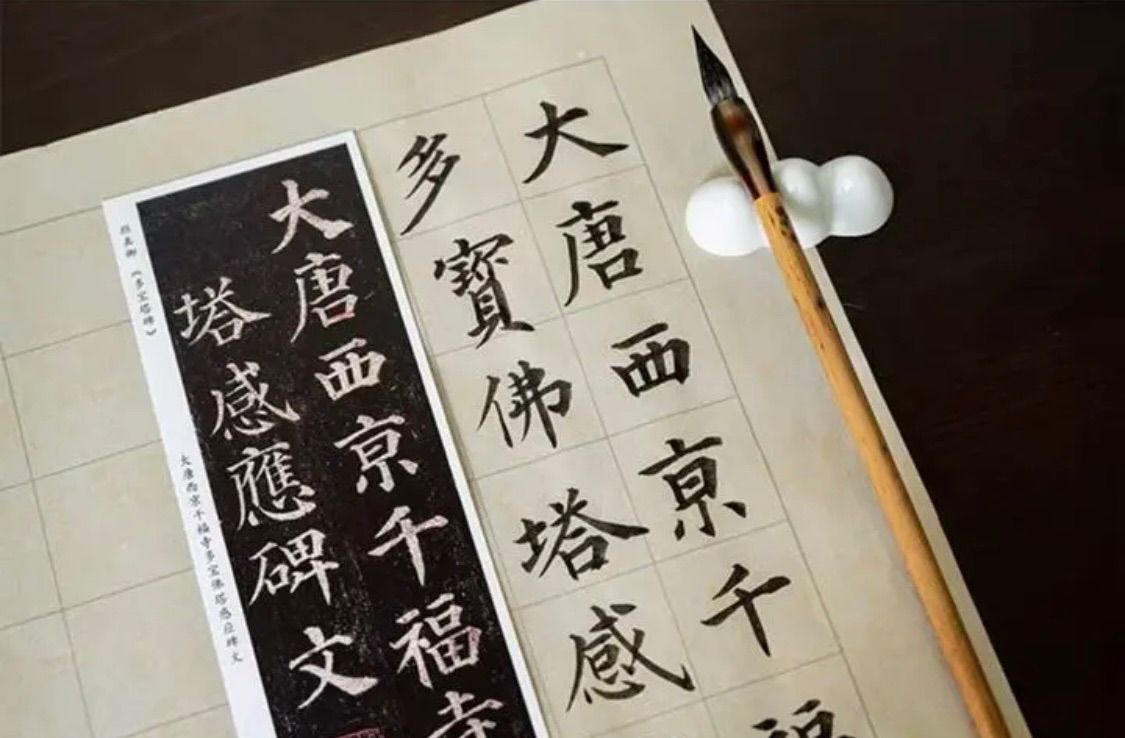 大唐西亰千福
多寶佛塔感
大唐西京千福寺
塔感應碑文
颜真卿《多宝塔碑》
大唐西京千福寺多宝佛塔感应碑文